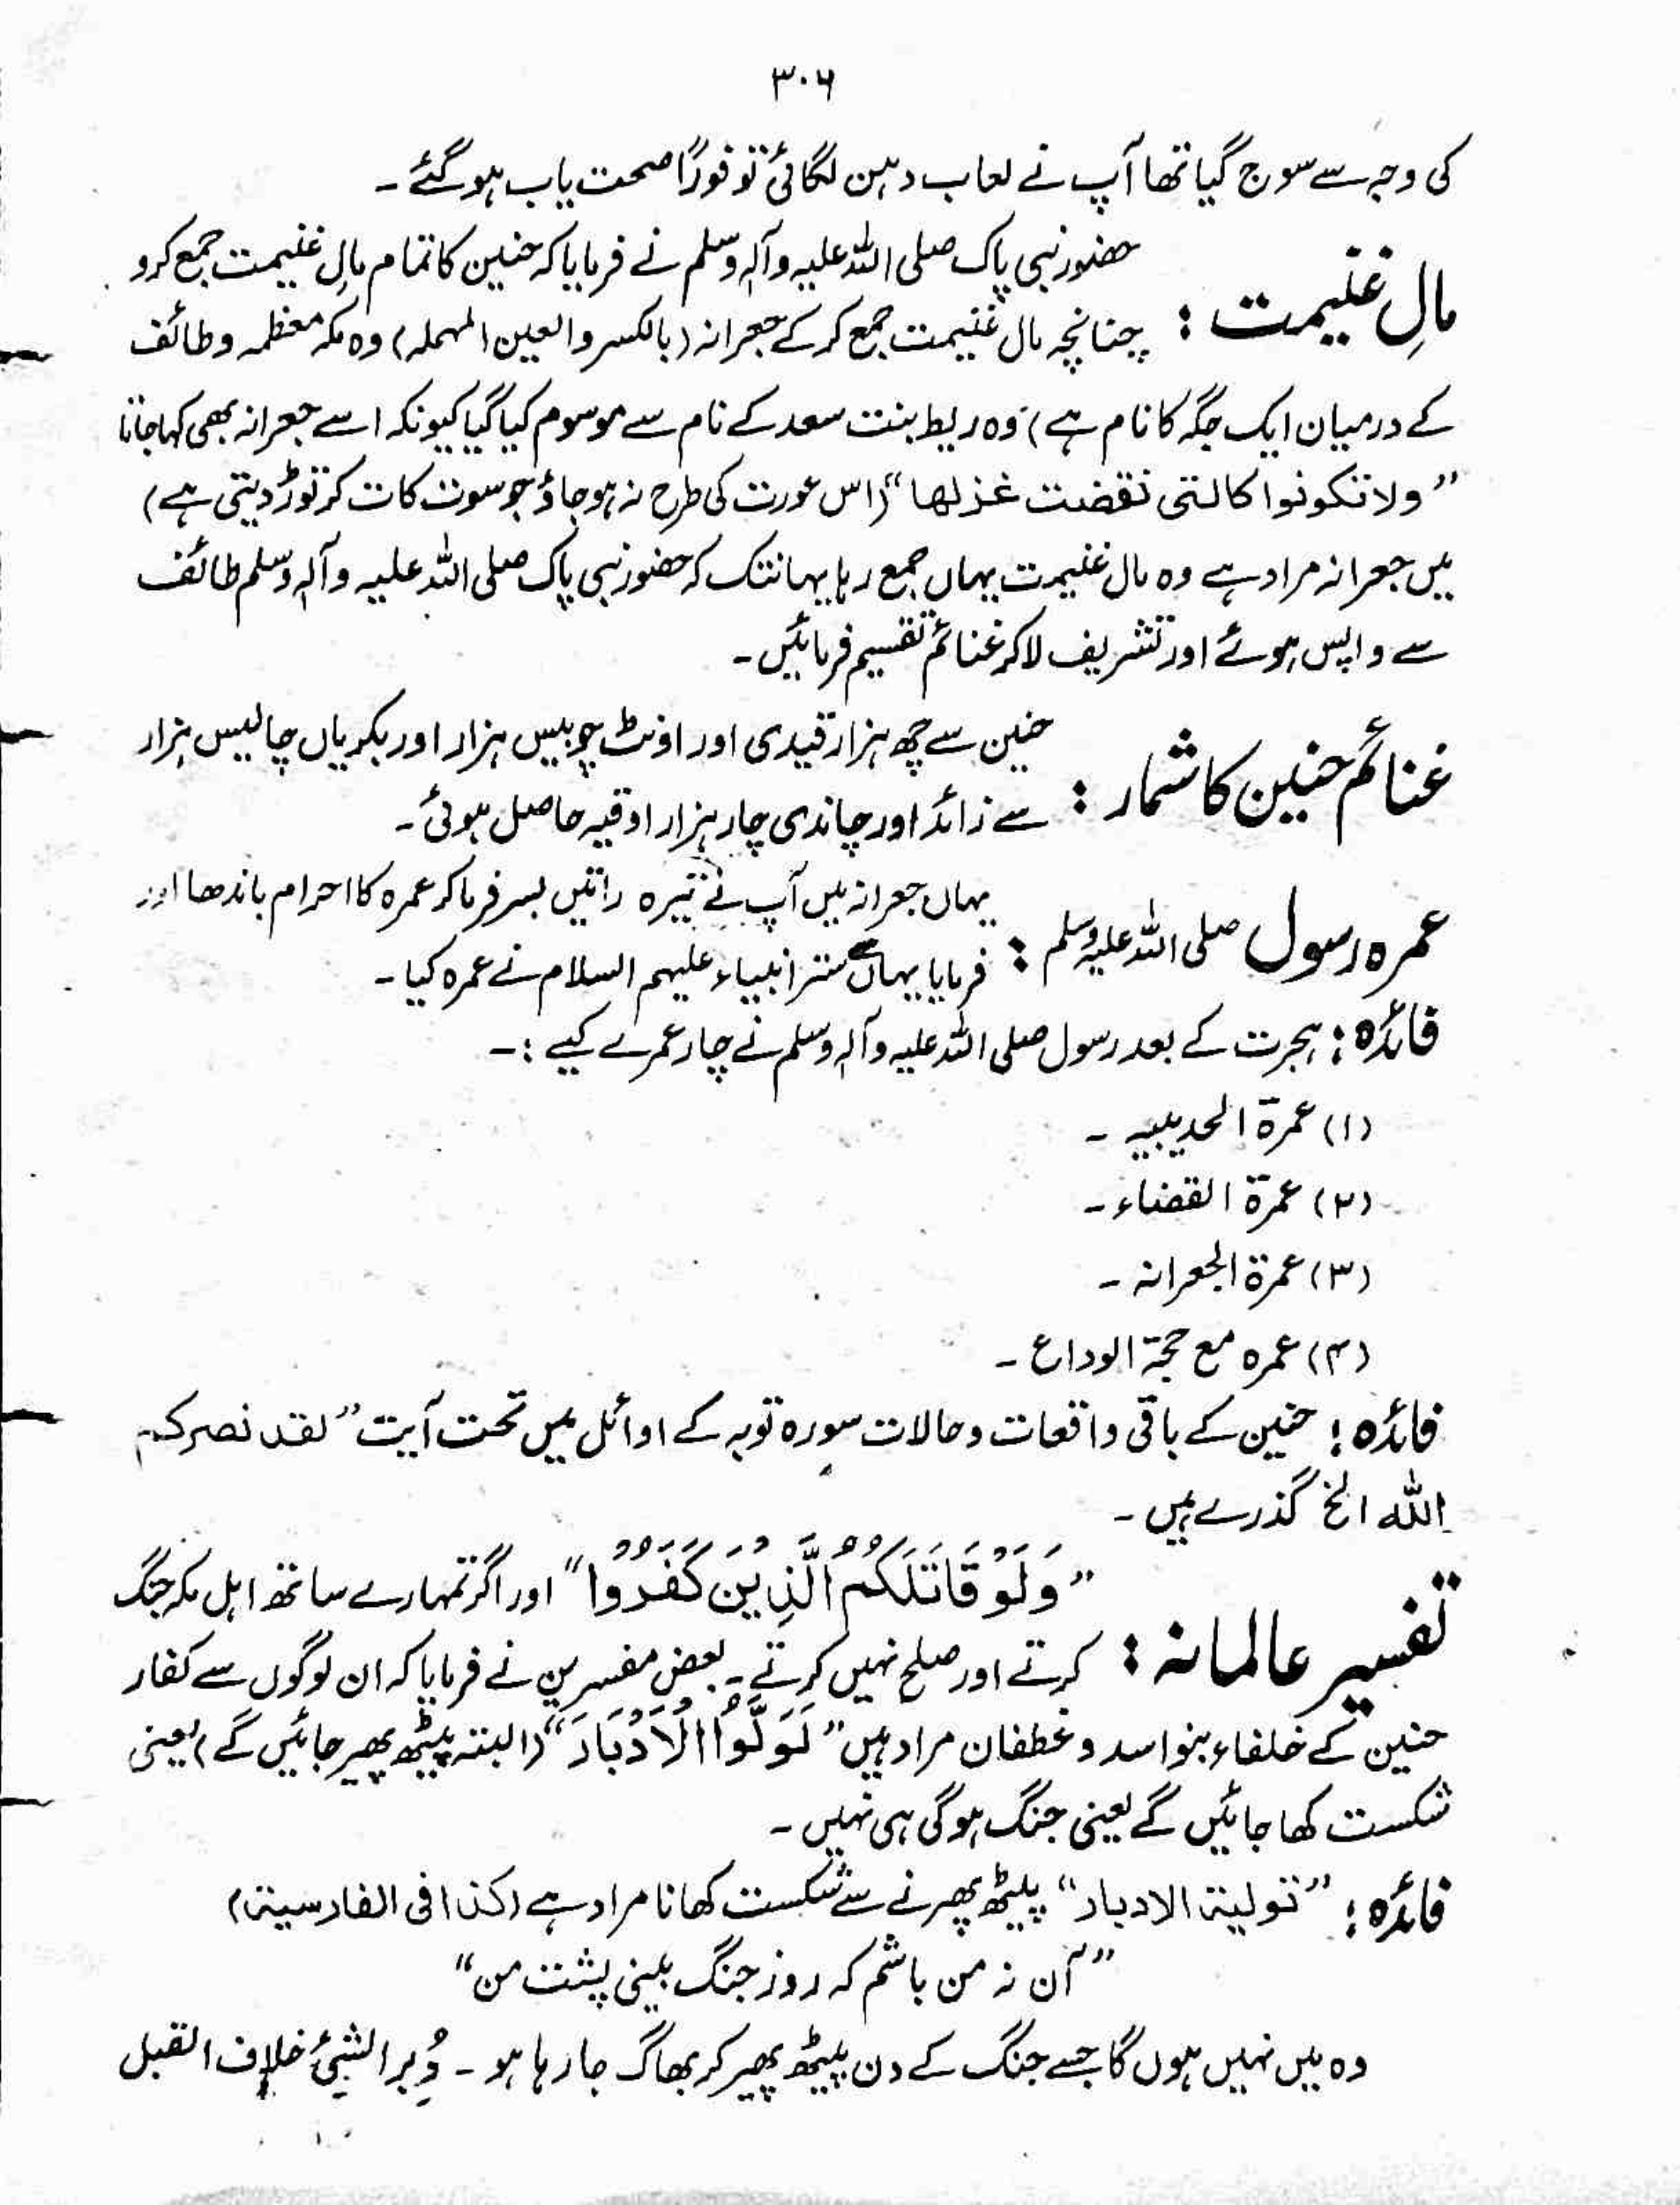 ۳۰۶
کی وجہ سے سوج گیا تھا آپ نے لعاب دہن لگائی تو فورًا صحت یاب ہو گئے ۔
مالِ غنیمت : حضور نبی پاک صلی اللہ علیہ وآلہٖ وسلم نے فرمایا کہ حنین کا تمام مالِ غنیمت جمع کرو
چنانچہ مال غنیمت جمع کر کے جعرانہ (بالکسر والعین المہملہ) وہ مکہ معظمہ و طائف
کے درمیان ایک جگہ کا نام ہے) وہ ریطہ بنت سعد کے نام سے موسوم کیا گیا کیونکہ اسے جعرانہ بھی کہا جاتا
”ولا تکونوا کالتی نقضت غزلھا“ (اس عورت کی طرح نہ ہو جاؤ جو سوت کات کر توڑ دیتی ہے)
میں جعرانہ مراد ہے وہ مال غنیمت یہاں جمع رہا یہانتک کہ حضور نبی پاک صلی اللہ علیہ وآلہٖ وسلم طائف
سے واپس ہوئے اور تشریف لاکر غنائم تقسیم فرمائیں ۔
غنائم حنین کا شمار : حنین سے چھ ہزار قیدی اور اونٹ چوبیس ہزار اور بکریاں چالیس ہزار
سے زائد اور چاندی چار ہزار اوقیہ حاصل ہوئی ۔
عمرہ رسول صلی اللہ علیہ وسلم : یہاں جعرانہ میں آپ نے تیرہ راتیں بسر فرما کر عمرہ کا احرام باندھا اور
فرمایا یہاں ستر انبیاء علیہم السلام نے عمرہ کیا ۔
فائدہ : ہجرت کے بعد رسول صلی اللہ علیہ وآلہٖ وسلم نے چار عمرے کیے :۔
(۱) عمرۃ الحدیبیہ ۔
(۲) عمرۃ القضاء ۔
(۳) عمرۃ الجعرانہ ۔
(۴) عمرہ مع حجۃ الوداع ۔
فائدہ : حنین کے باقی واقعات و حالات سورہ توبہ کے اوائل میں تحت آیت ”لقد نصرکم
اللہ الخ گذرے ہیں ۔
تفسیر عالمانہ : ”وَلَوْ قَاتَلَكُمُ الَّذِيْنَ كَفَرُوْا“ اور اگر تمہارے ساتھ اہل مکہ جنگ
کرتے اور صلح نہیں کرتے ۔ بعض مفسرین نے فرمایا کہ ان لوگوں سے کفار
حنین کے خلفاء بنو اسد و غطفان مراد ہیں ”لَوَلَّوُا الْاَدْبَارَ“ (البتہ پیٹھ پھیر جائیں گے) یعنی
شکست کھا جائیں گے یعنی جنگ ہوگی ہی نہیں ۔
فائدہ : ”تولیۃ الادبار“ پیٹھ پھرنے سے شکست کھانا مراد ہے (کذا فی الفارسیۃ)
”آن نہ من باشم کہ روز جنگ بینی پشت من“
وہ میں نہیں ہوں گا جسے جنگ کے دن پیٹھ پھیر کر بھاگ جا رہا ہو ۔ دُبر الشیئ خلاف القبل